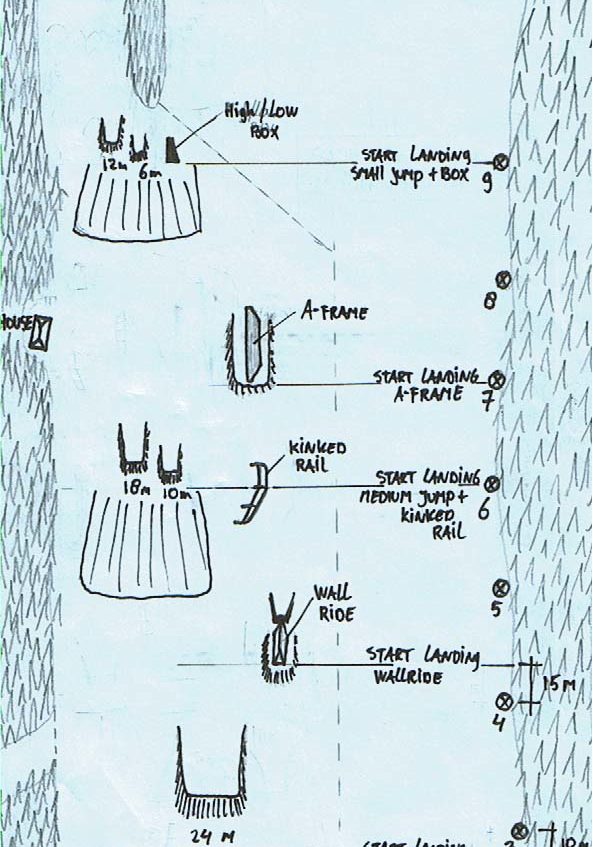 High/Low
BOX
12m
6m
START LANDING
SMALL JUMP + BOX
9
8
HOUSE
A-FRAME
START LANDING
A-FRAME
7
KINKED
RAIL
18m
10m
START LANDING
MEDIUM JUMP +
KINKED
RAIL
6
5
WALL
RIDE
START LANDING
WALLRIDE
15 M
4
24 M
START LANDING